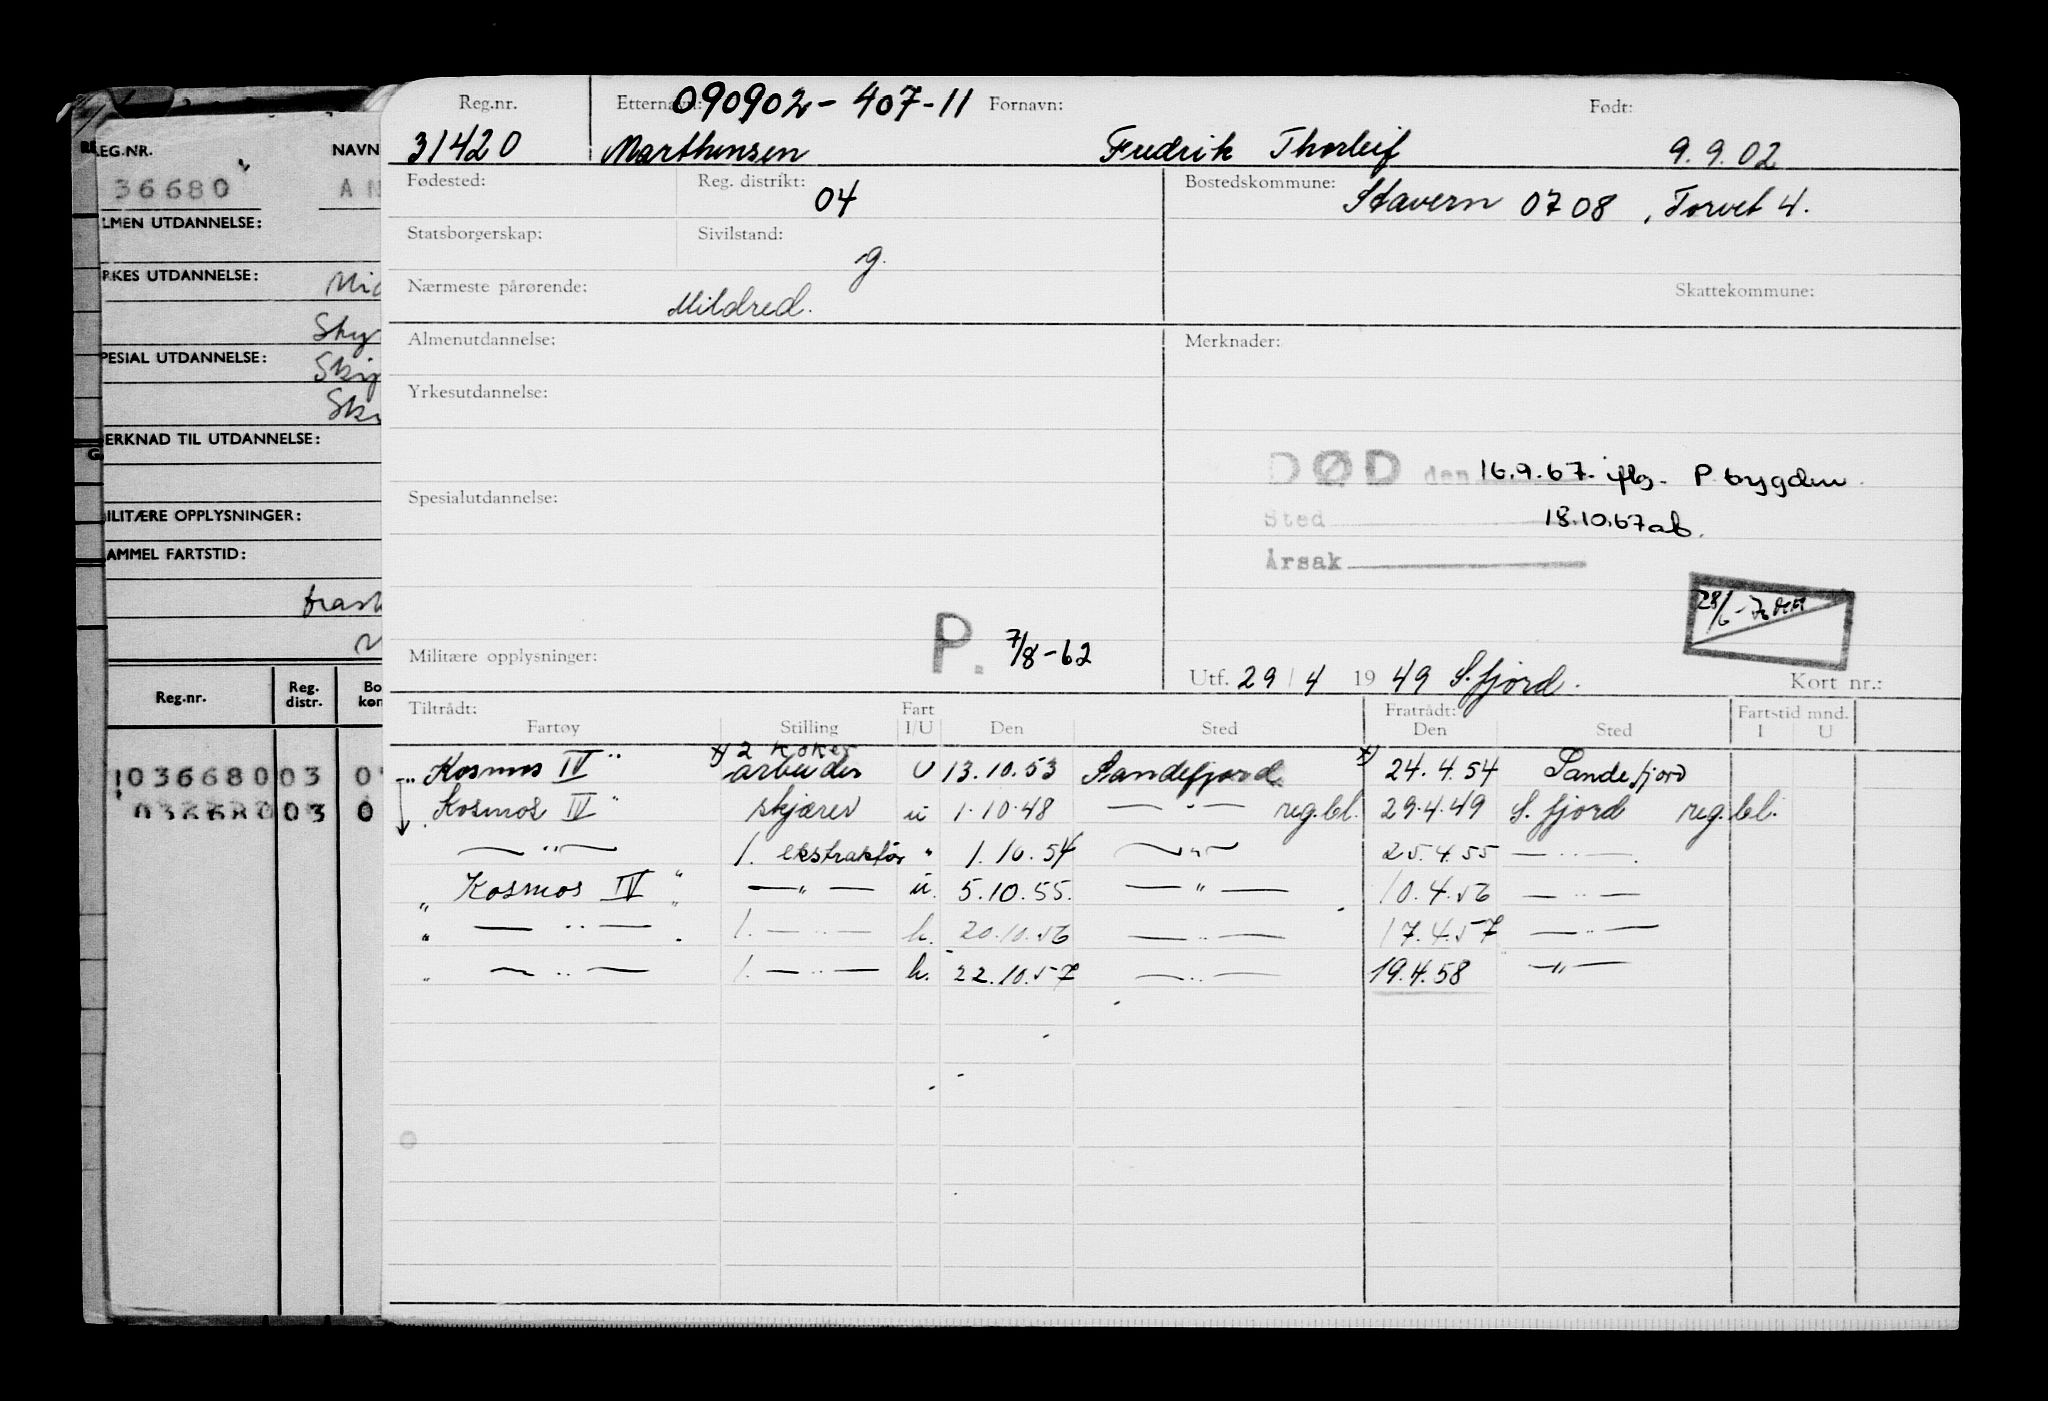 REG.NR. NAVN
36680 AN
ALMEN UTDANNELSE:
YRKES UTDANNELSE:
SPESIAL UTDANNELSE:
MERKNAD TIL UTDANNELSE:
MILITÆRE OPPLYSNINGER:
GAMMEL FARTSTID:
Reg.nr. Reg. distr. Bo kom
103668003 0
03668003 0
Reg.nr. Etternavn: 090902-407-11 Fornavn: Født:
31420 Marthinsen Fredrik Thorleif 9.9.02
Fødested: Reg. distrikt: 04 Bostedskommune: Stavern 0708, Torvet 4.
Statsborgerskap: Sivilstand: g.
Nærmeste pårørende: Mildred. Skattekommune:
Almenutdannelse: Merknader:
Yrkesutdannelse:
DØD den 16.9.67. iflg. P. trygden
Spesialutdannelse:
Sted 18.10.67 ab.
Årsak
28/6-76
Militære opplysninger: P. 7/8-62
Utf. 29/4 1949 S.fjord. Kort nr.:
Tiltrådt: Fart Fratrådt: Fartstid mnd.
Fartøy Stilling I/U Den Sted Den Sted I U
x) 2 koker
"Kosmos IV" arbeider U 13.10.53 Sandefjord x) 24.4.54 Sandefjord
Kosmos IV" skjærer u 1.10.48 — " — reg.bl. 29.4.49 S.fjord reg.bl.
— " — 1. ekstraktør " 1.10.54 — " — 25.4.55 — " —
"Kosmos IV" — " — u. 5.10.55. — " — 10.4.56 — " —
" — " — 1. — " — h. 20.10.56 — " — 17.4.57 — " —
" — " — 1. — " — h. 22.10.57 — " — 19.4.58 — " —